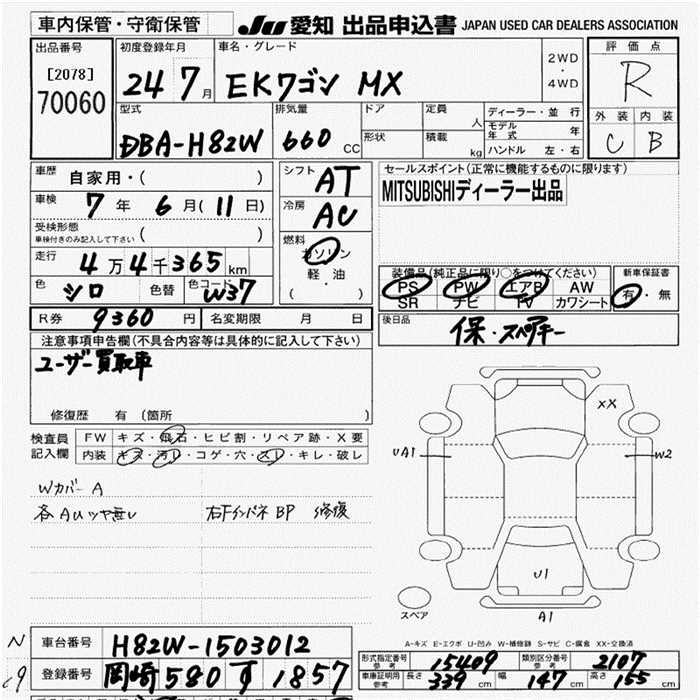 車内保管・守衛保管 JU 愛知 出品申込書 JAPAN USED CAR DEALERS ASSOCIATION
出品番号 [2078] 70060
初度登録年月 24 7月
車名・グレード EKワゴン MX
2WD・4WD
評価点 R
外装 内装
C B
型式 DBA-H82W
排気量 660 CC
ドア
形状
定員 人
積載 kg
ディーラー・並行
モデル年式 年
ハンドル 左・右
車歴 自家用・( )
車検 7年 6月(11日)
受検形態
車検付きのみ記入して下さい ( )
走行 4万4千365km
色 シロ 色替 色コード W37
シフト AT
冷房 AC
燃料 ガソリン
軽・油
( )
セールスポイント(正常に機能するものに限ります)
MITSUBISHIディーラー出品
装備品(純正品に限り○をつけてください) 新車保証書
PS PW エアB AW 有・無
SR ナビ TV カワシート
R券 9360円 名変期限 月 日
後日品 保・スペアキー
注意事項申告欄(不具合内容等は具体的に記入して下さい)
ユーザー買取車
修復歴 有 (箇所 )
検査員記入欄
FW キズ・飛石・ヒビ割・リペア跡・X要
内装 キズ・汚レ・コゲ・穴・スレ・キレ・破レ
Wカバー A
各AUツヤ無し 右Fインパネ BP 修復
XX
UA1
W2
U1
A1
スペア
A-キズ E-エクボ U-凹み W-補修跡 S-サビ C-腐食 XX-交換済
車台番号 H82W-1503012
登録番号 岡崎 580 す 1857
形式指定番号 参考 15409 類別区分番号 参考 2107
車庫証明用 参考 長さ 339cm 幅 147cm 高さ 155cm